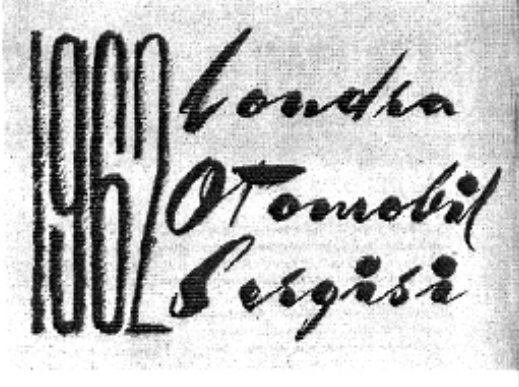 1962 Londra
OTomobil
Sergisi